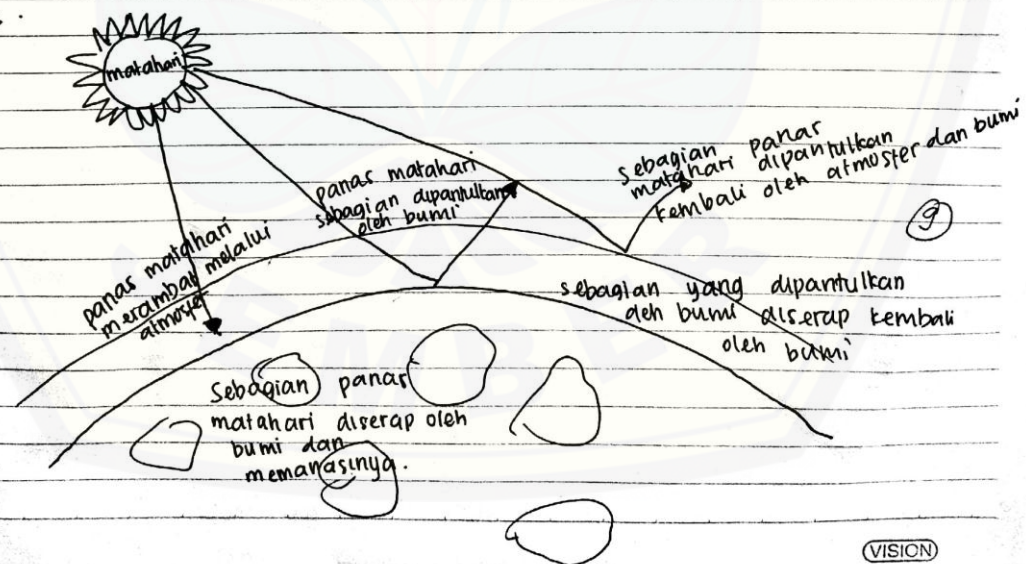 matahari
panas matahari
merambat melalui
atmosfer
panas matahari
sebagian dipantulkan
oleh bumi
sebagian panas
matahari dipantulkan
kembali oleh atmosfer dan bumi
9
sebagian yang dipantulkan
oleh bumi diserap kembali
oleh bumi
Sebagian panas
matahari diserap oleh
bumi dan
memanasinya.
VISION